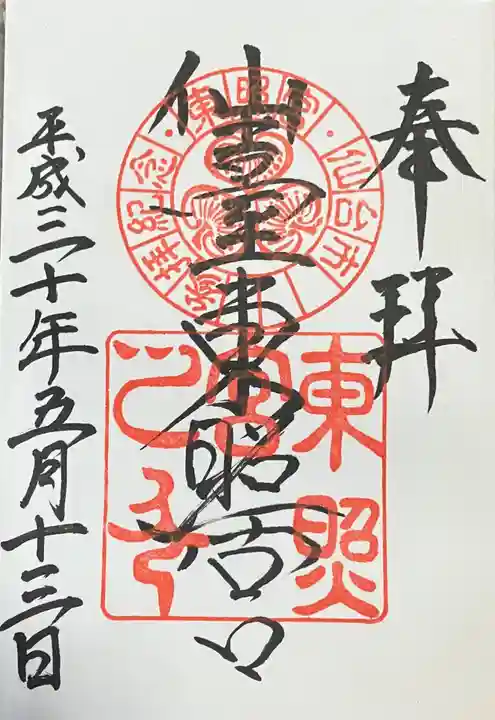 奉拝
仙臺東照宮
平成三十年五月十三日
東照
宮
之印
東照宮・仙台市・参拝記念